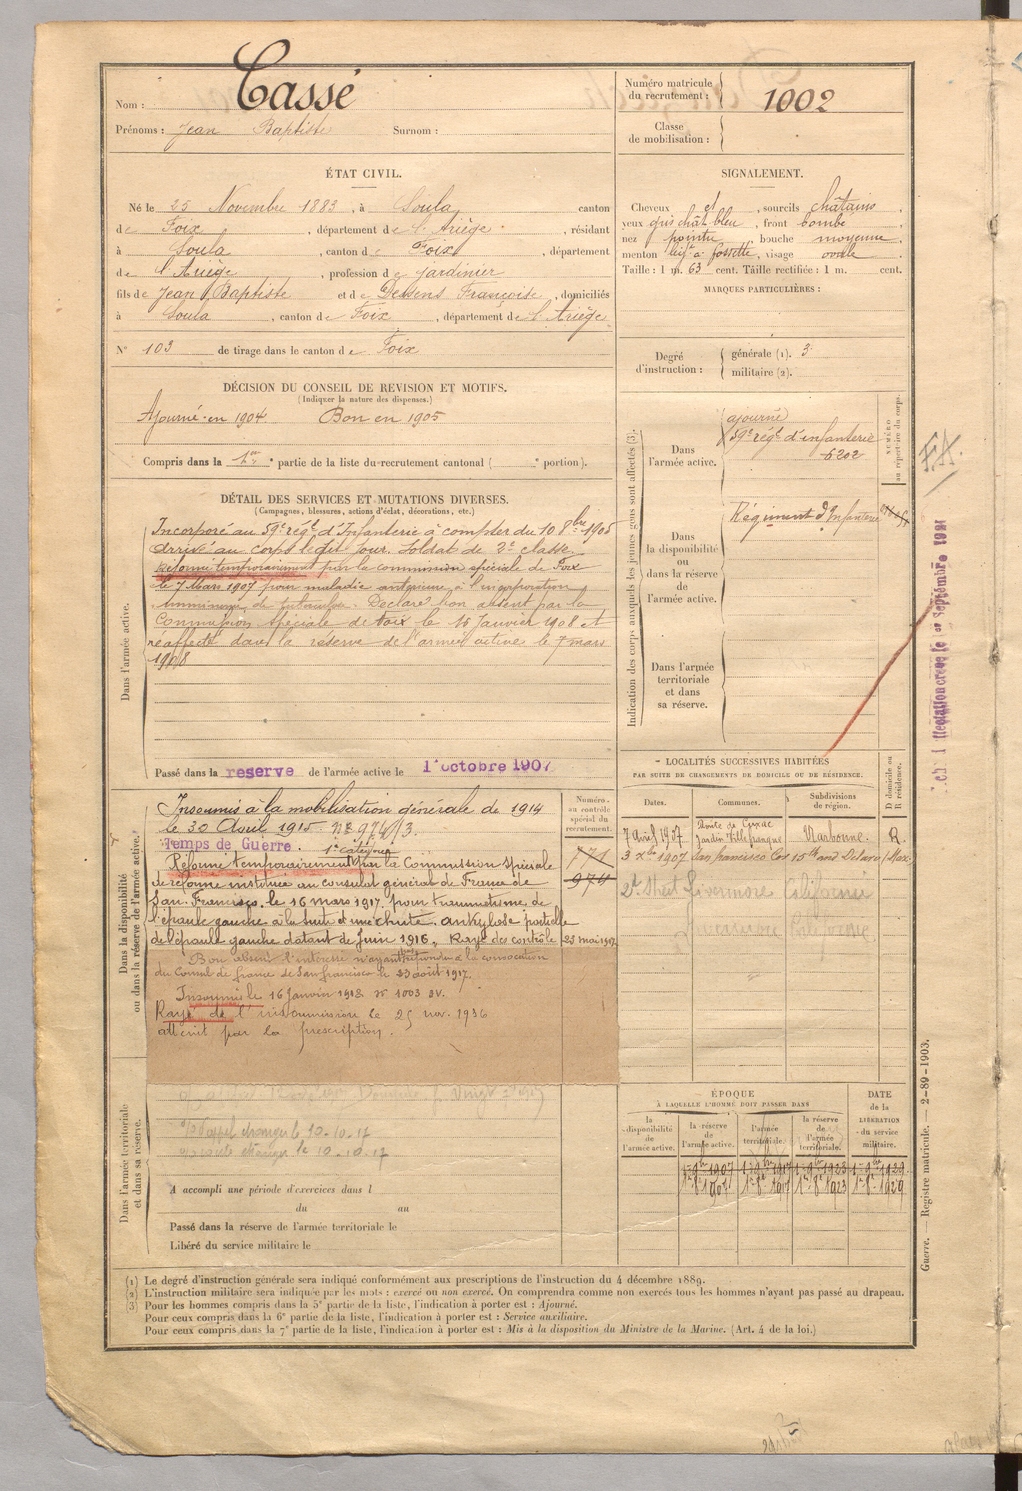 Nom : Cassé
Prénoms : Jean Baptiste Surnom :
Numéro matricule du recrutement : 1002
Classe de mobilisation :
ÉTAT CIVIL.
Né le 25 Novembre 1883, à Soula canton
de Foix, département de l'Ariège, résidant
à Soula, canton de Foix, département
de l'Ariège, profession de jardinier
fils de Jean Baptiste et de Dessens Françoise, domiciliés
à Soula, canton de Foix, département de l'Ariège
N° 103 de tirage dans le canton de Foix
SIGNALEMENT.
Cheveux et, sourcils châtains,
yeux gris chât bleu, front bombé
nez pointu, bouche moyenne,
menton à fossette, visage ovale
Taille : 1 m. 63 cent. Taille rectifiée : 1 m. cent.
MARQUES PARTICULIÈRES :
Degré d'instruction :
générale (1). 3
militaire (2).
DÉCISION DU CONSEIL DE REVISION ET MOTIFS.
(Indiquer la nature des dispenses.)
Ajourné en 1904 Bon en 1905
Compris dans la 1re partie de la liste du recrutement cantonal ( e portion).
DÉTAIL DES SERVICES ET MUTATIONS DIVERSES.
(Campagnes, blessures, actions d'éclat, décorations, etc.)
Dans l'armée active.
Incorporé au 59e régt d'Infanterie à compter du 10 8bre 1905
arrivé au corps le dit jour. Soldat de 2e classe
Réformé temporairement par la commission spéciale de Foix
le 7 Mars 1907 pour maladie antérieure à l'incorporation
imminence de tuberculose. Déclaré bon absent par la
Commission Spéciale de Foix le 15 janvier 1908 et
réaffecté dans la réserve de l'armée active le 7 mars
1908
Passé dans la reserve de l'armée active le 1 octobre 1907
Indication des corps auxquels les jeunes gens sont affectés (3).
NUMÉRO au répertoire du corps.
Dans l'armée active.
ajourné
59e régt d'infanterie
6202
Dans la disponibilité ou dans la réserve de l'armée active.
Régiment d'Infanterie
Dans l'armée territoriale et dans sa réserve.
F.A.
1er Septembre 1921
Dans la disponibilité ou dans la réserve de l'armée active.
Numéro au contrôle spécial du recrutement.
Insoumis à la mobilisation générale de 1914
le 30 Avril 1915 n° 974/3.
Temps de Guerre. 1e catégorie
Réformé temporairement par la Commission spéciale
de réforme instituée au consulat général de France de
San Francisco le 16 mars 1917 pour traumatisme de
l'épaule gauche à la suite d'une chute. ankylose partielle
de l'épaule gauche datant de Juin 1916. Rayé des contrôles
23 mai 1917
771
974
Bon absent l'intéressé n'ayant répondu à la convocation
du Consul de france de San francisco le 30 août 1917.
Insoumis le 16 Janvier 1918 n° 1003 DV.
Rayé de l'insoumission le 25 nov. 1936
atteint par la prescription.
LOCALITÉS SUCCESSIVES HABITÉES
PAR SUITE DE CHANGEMENTS DE DOMICILE OU DE RÉSIDENCE.
Dates. Communes. Subdivisions de région. D domicile ou R résidence.
7 Avril 1907 Route de Cuxac Jardin Villefranque Narbonne. R
3 xbre 1907 San francisco
2d Street Livermore Californie
Dans l'armée territoriale et dans sa réserve.
étranger le 10-10-17
étranger le 10-10-17
A accompli une période d'exercices dans l
du au
Passé dans la réserve de l'armée territoriale le
Libéré du service militaire le
ÉPOQUE
À LAQUELLE L'HOMME DOIT PASSER DANS
DATE de la LIBÉRATION du service militaire.
la disponibilité de l'armée active. la réserve de l'armée active. l'armée territoriale. la réserve de l'armée territoriale.
1er 9bre 1907 1er 9bre 1917 1er 9bre 1923 1er 9bre 1929
1er 8bre 1907 1er 8bre 1917 1er 8bre 1923 1er 8bre 1929
(1) Le degré d'instruction générale sera indiqué conformément aux prescriptions de l'instruction du 4 décembre 1889.
(2) L'instruction militaire sera indiquée par les mots : exercé ou non exercé. On comprendra comme non exercés tous les hommes n'ayant pas passé au drapeau.
(3) Pour les hommes compris dans la 5e partie de la liste, l'indication à porter est : Ajourné.
Pour ceux compris dans la 6e partie de la liste, l'indication à porter est : Service auxiliaire.
Pour ceux compris dans la 7e partie de la liste, l'indication à porter est : Mis à la disposition du Ministre de la Marine. (Art. 4 de la loi.)
Guerre. — Registre matricule. — 2-89-1903.